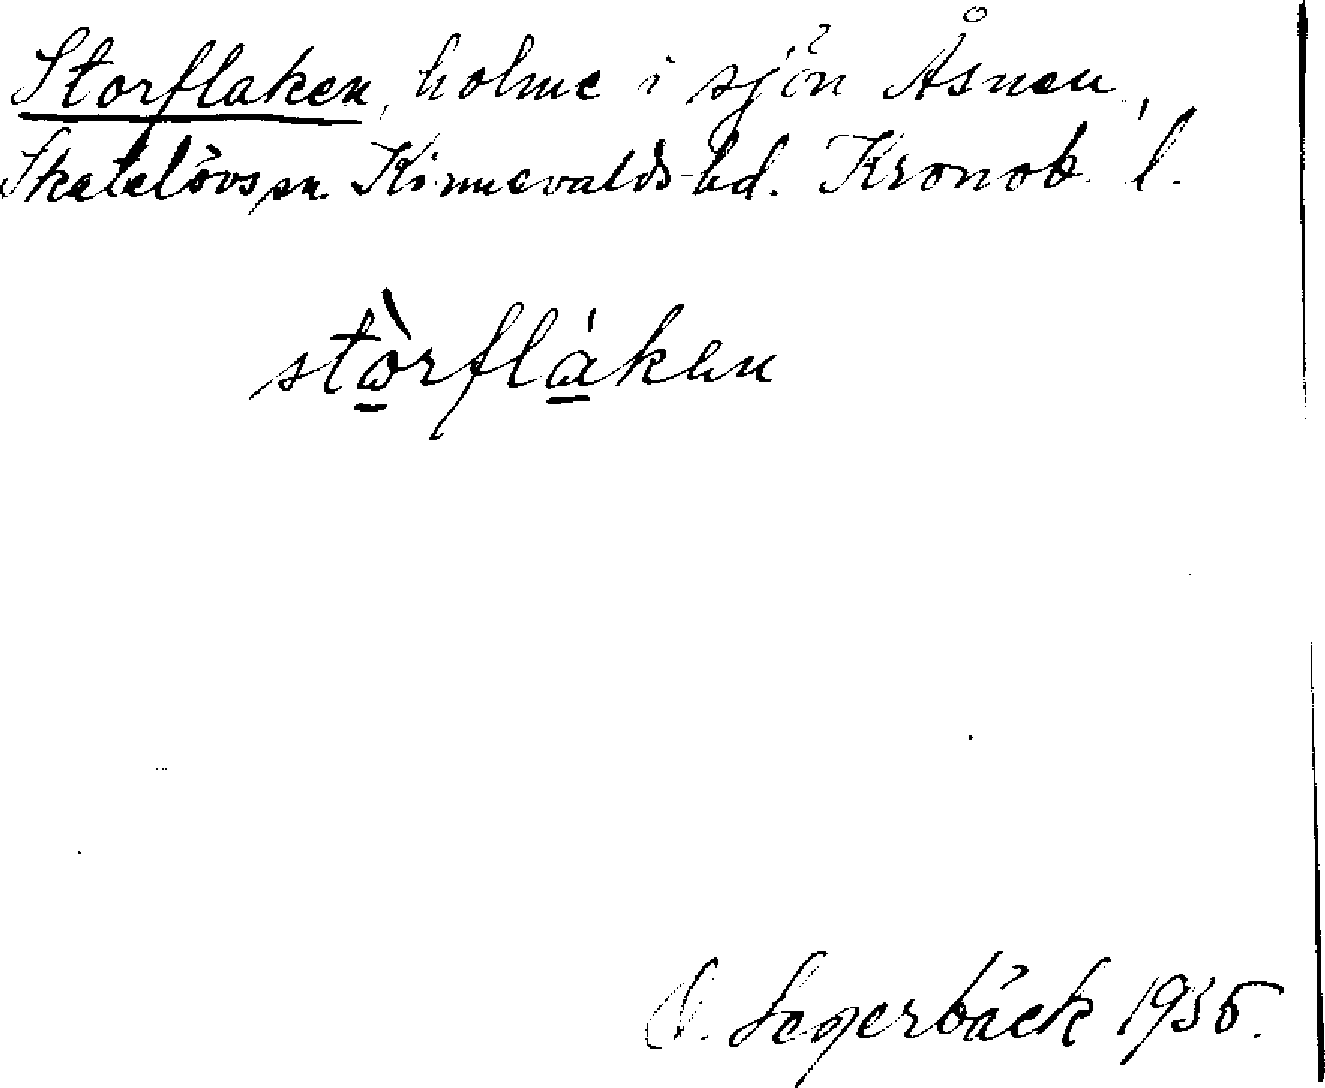 Storflaken, holme i sjön Åsnen,
Skatelövs sn. Kinnevalds hd. Kronob. l.
stòrfláken
Segerbäck 1935.